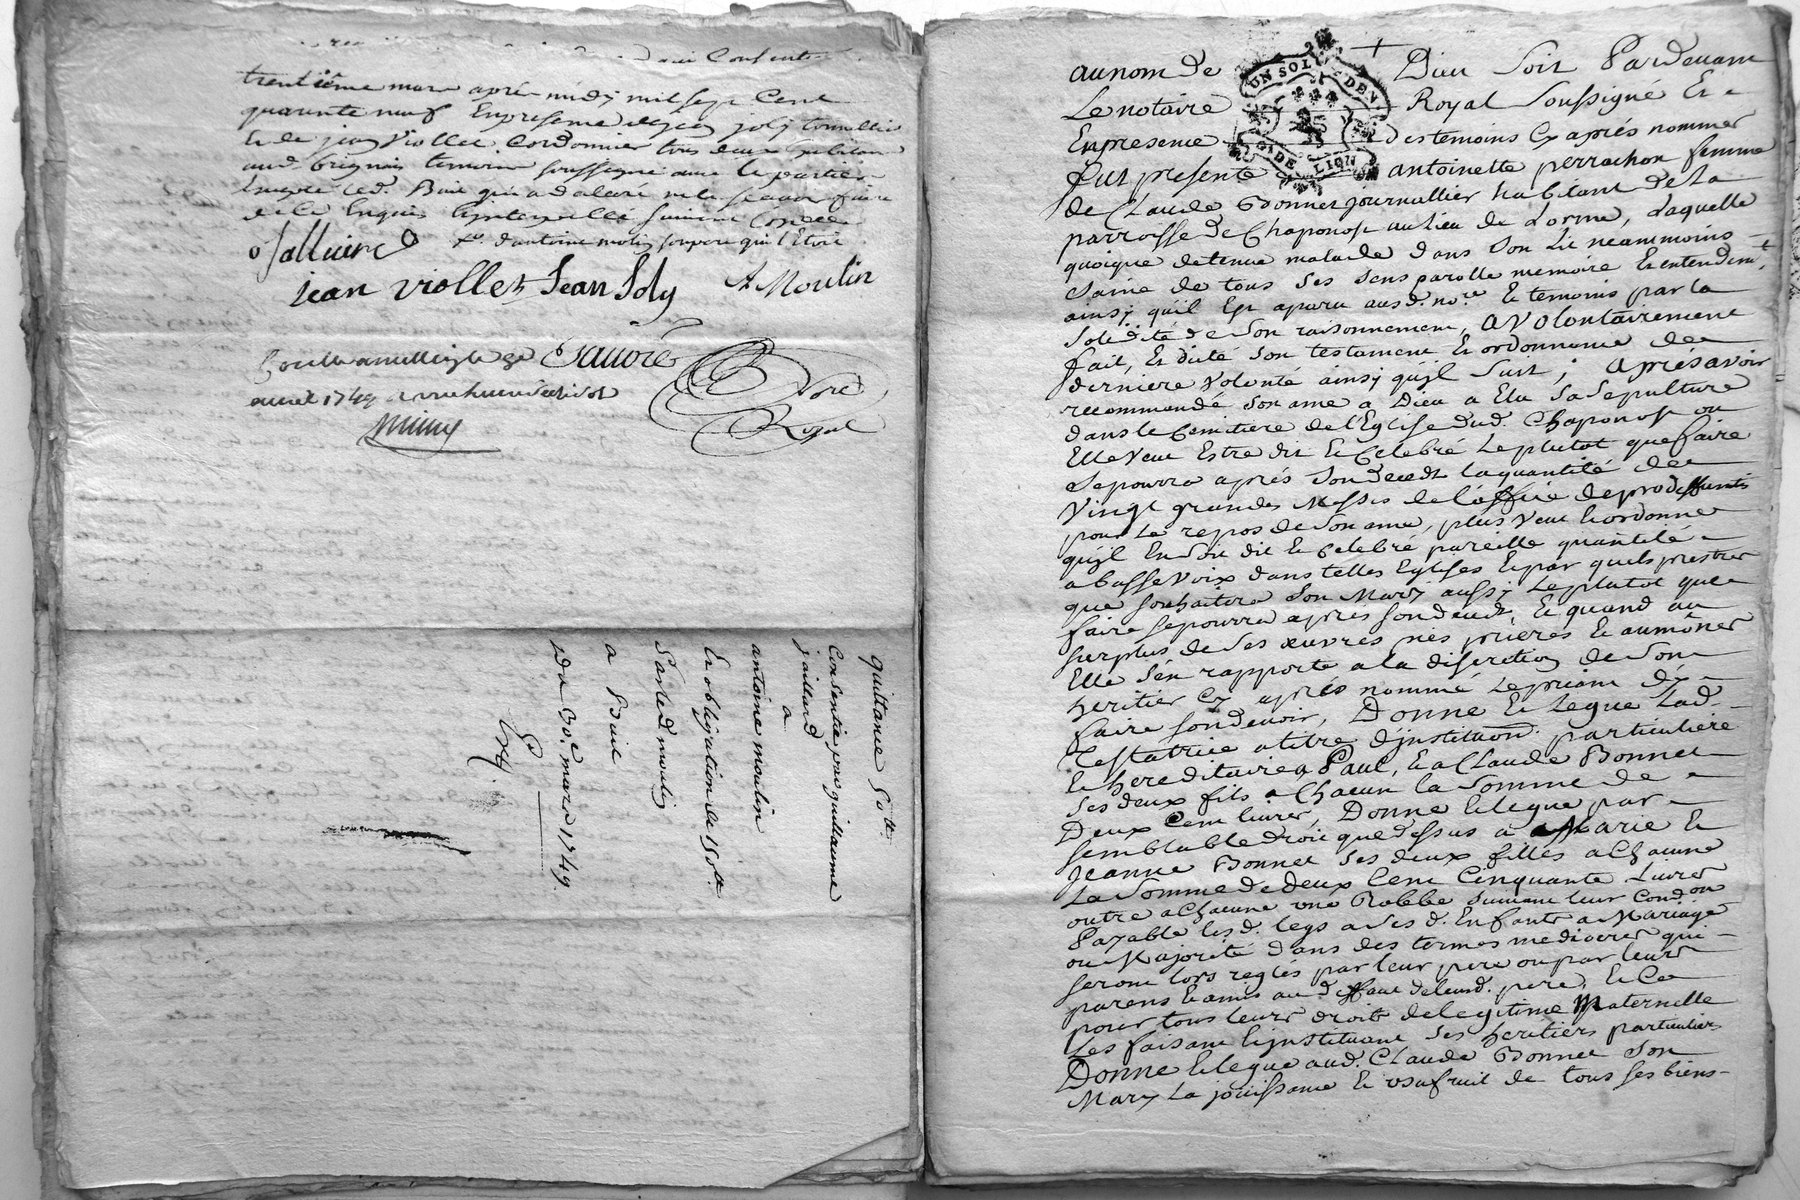 trentième mars après midy mil sept Cent
quarante neuf En presence de jean joly tonnellier
Et de jean Viollet Cordonnier tous deux habitans
aud. Brignais temoins soussignes avec les parties
led. Buie qui a declaré ne le scavoir faire
de ce Enquis
d'antoine molin
jean viollet Jean Joly A Moulin
Sauvoré
avril 1749
Nore
Royal
quittance 50tt
Consentie par guillaume
jaillard
a
antoine moulin
Et obligation de 150tt
Par led. moulin
a Buie
Du 30e. mars 1749.
au nom de Dieu Soit Pardevant
Le notaire Royal Soussigné Et
UN SOL DEN
G. DE LION
En presence des temoins Cy aprés nommer
fut presente antoinette perrachon femme
de Claude Bonnet journallier habitant de la
parroisse de Chaponost au Lieu de Lorme, Laquelle
quoique detenue malade dans Son Lit neammoins
Saine de tous Ses Sens parolle memoire Et entendemt.
ainsy qu'il Est aparu aud. nore. Et temoins par la
Solidité de Son raisonnement, a volontairement
fait, Et dicté Son testament Et ordonnance de
derniere volonté ainsy qu'jl Suit; aprés avoir
recommandé Son ame a Dieu a Elu Sa Sepulture
dans le Cemitiere de l'Eglise dud. Chaponost ou
Elle veut Estre dit Et Celebré Le plutot que faire
Se pourra aprés Son decedt la quantité de
Vingt grandes Messes de l'office de pro deffunts
pour Le repos de Son ame, plus veut Et ordonne
qu'jl En Soit dit Et Celebré pareille quantité
a basse Voix dans telles Eglises Et par quels prestres
que Souhaitera Son Mary aussy Le plutot que
faire Se pourra aprés Son decedt, Et quand au
Surplus de Ses œuvres pies prieres Et aumônes
Elle S'en rapporte a la discretion de Son
heritier Cy aprés nommé Le priant d'y
faire Son devoir, Donne Et Legue Lad.
Testatrice a titre d'jnstitution particuliére
Et hereditaire a Paul, Et a Claude Bonnet
Ses deux fils a Chacun la Somme de
Deux Cent livres, Donne Et legue par
Semblable droit que dessus a Marie Et
Jeanne Bonnet Ses deux filles a Chacune
La Somme de deux Cent Cinquante Livres
outre a Chacune une Robbe Suivant leur Condon
Payable lesd. legs a Ses d. Enfants a Mariage
ou Majorité dans des termes mediocres qui
Seront lors reglés par leur pere ou par leurs
parens Et amis au deffaut de leurd. pere, Et Ce
pour tous leurs droits de legitime Maternelle
Les faisant Et jnstituant Ses heritiers particuliers
Donne Et legue aud. Claude Bonnet Son
Mary La jouissance Et usufruit de tous Ses biens